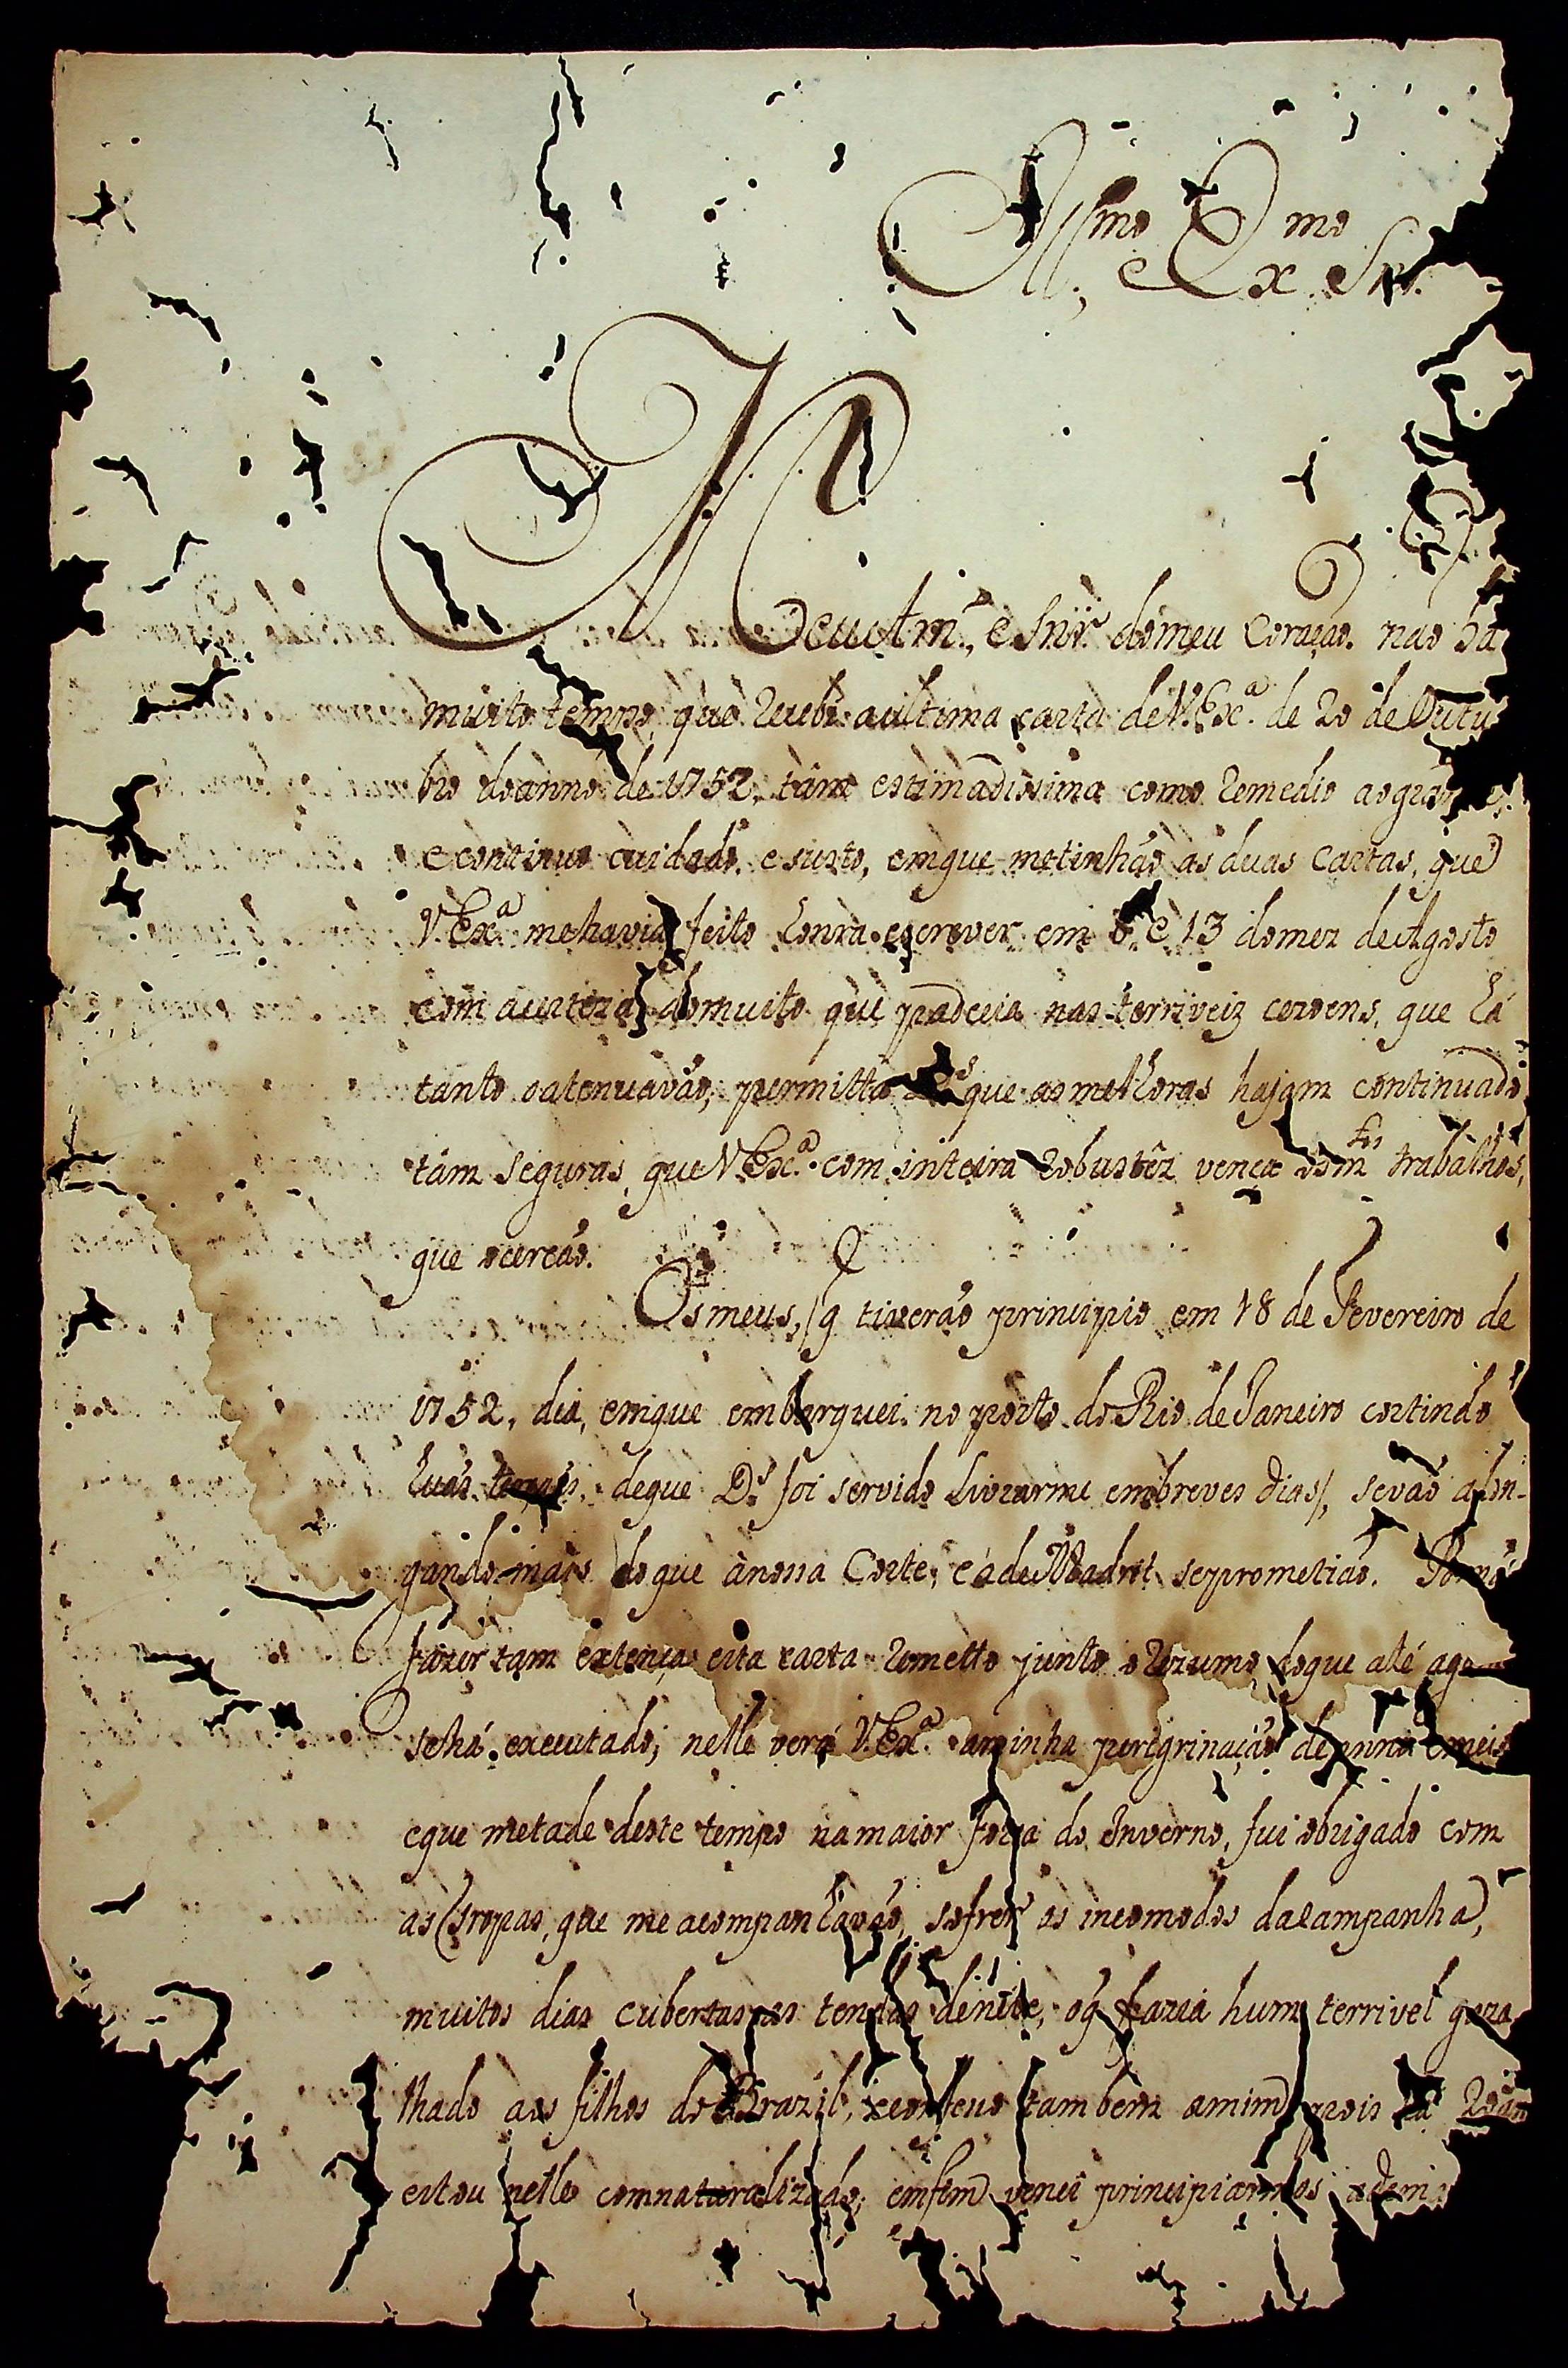 Ill.mo e Ex.mo Snr.
Meu Am.o, e Snr. do meu Coração. não há
muito tempo, que recebi a ultima carta de V. Ex.a de 20 de Outu
bro do anno de 1752, tam estimadissima como remedio ao grande,
e continuo cuidado, e susto, em que me tinhão as duas cartas, que
V. Ex.a me havia feito honra escrever em 6, e 13 do mez de Agosto
com a certeza do muito que padecia nas terriveiz cezoens, que lá
tanto o atenuavão; permitta D.s que as melhoras hajam continuado
tam seguras, que V. Ex.a com inteira robustêz vença os m.tos trabalhos,
que o cercão.
Os meus, /q̃ tiverão principio em 18 de Fevereiro de
1752, dia, em que embarquei no porto do Rio de Janeiro cortindo
huas terçãs, de que D.s foi servido livrarme em breves dias/, se vão alon-
gando mais do que a nossa Corte, e a de Madrid se prometião. Por não
fazer tam extença esta carta remetto junto o rezumo do que até ago
se há executado; nelle verá V. Ex.a a minha peregrinação de anno e meio
e que metade deste tempo na maior força do Inverno, fui obrigado com
as Tropas, que me acompanhavão, sofrer os incomodos da campanha,
muitos dias cubertas as tendas de neve, o q̃ fazia hum terrivel gaza
lhado aos filhos do Brazil, e confeço tambem a mim, pois há 20 an
estou nelle comnaturalizado; emfim venci principiarmos a dem